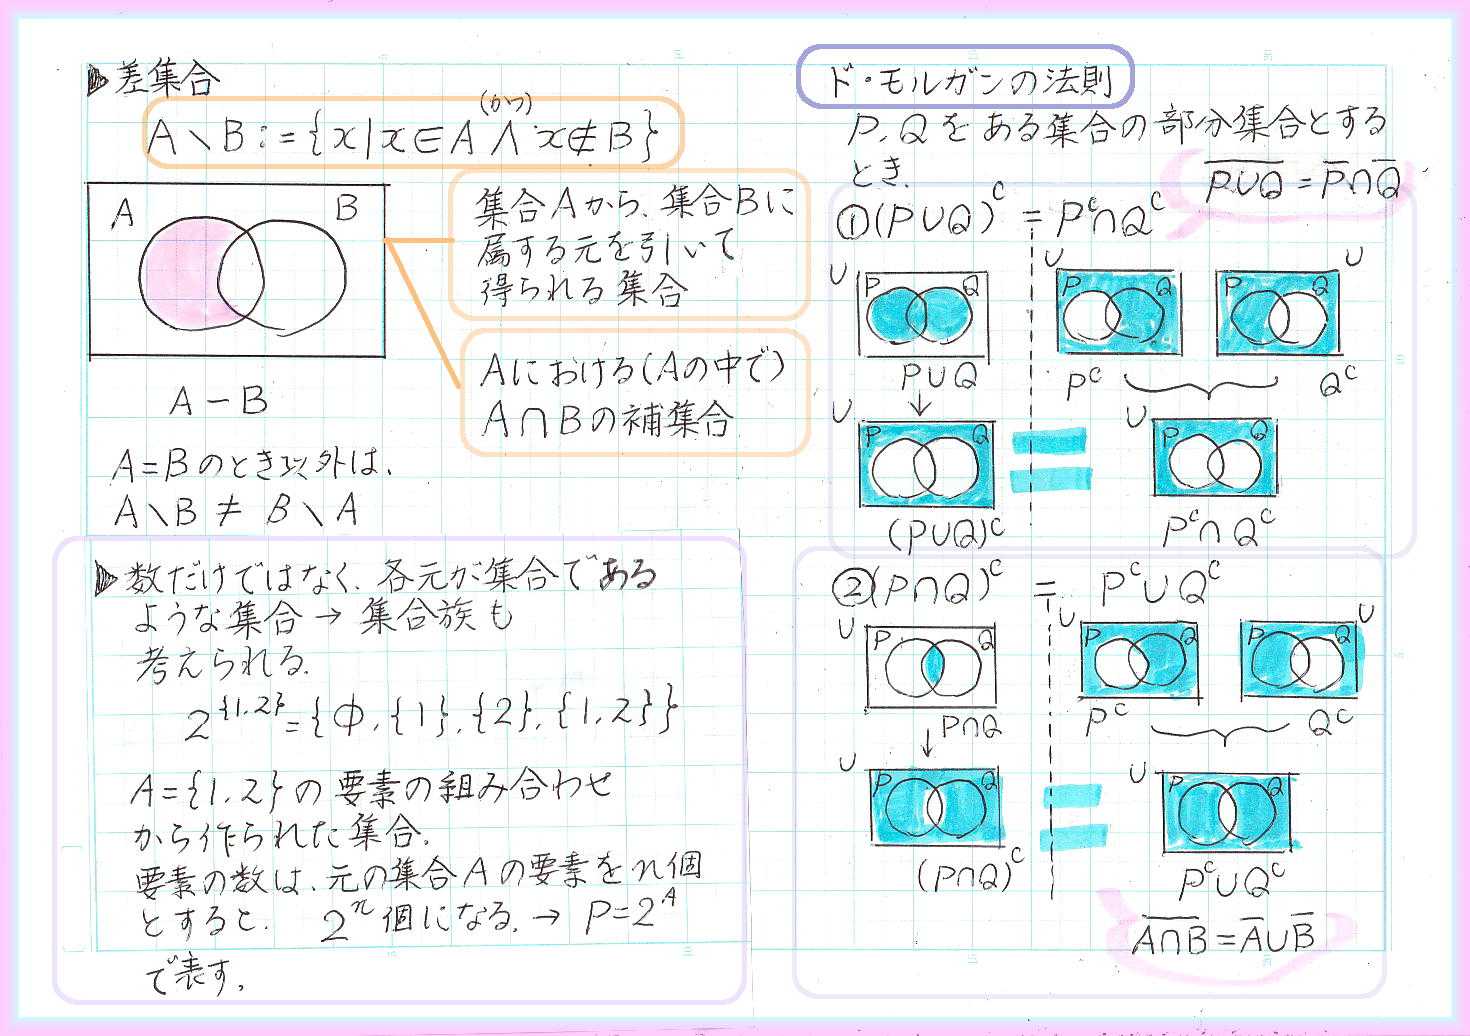 ▶差集合
(かつ)
A∖B:={x|x∈A∧x∉B}
A B
集合Aから、集合Bに
属する元を引いて
得られる集合
Aにおける(Aの中で)
A∩Bの補集合
A−B
A=Bのとき以外は、
A∖B≠B∖A
▶数だけではなく、各元が集合である
ような集合→集合族も
考えられる.
2^{1,2}={Φ,{1},{2},{1,2}}
A={1,2}の要素の組み合わせ
から作られた集合.
要素の数は、元の集合Aの要素をn個
とすると、2^n個になる.→P=2^A
で表す。
ド・モルガンの法則
P,Qをある集合の部分集合とする
とき、
P̅∪̅Q̅=P̅∩Q̅
①(P∪Q)^C=P^C∩Q^C
U P Q
U P Q
P Q U
P∪Q
P^C Q^C
↓
U P Q
U P Q
(P∪Q)^C
P^C∩Q^C
②(P∩Q)^C=P^C∪Q^C
U P Q
U P Q
P Q U
↓P∩Q
P^C Q^C
U P Q
U P Q
(P∩Q)^C
P^C∪Q^C
A̅∩̅B̅=A̅∪B̅